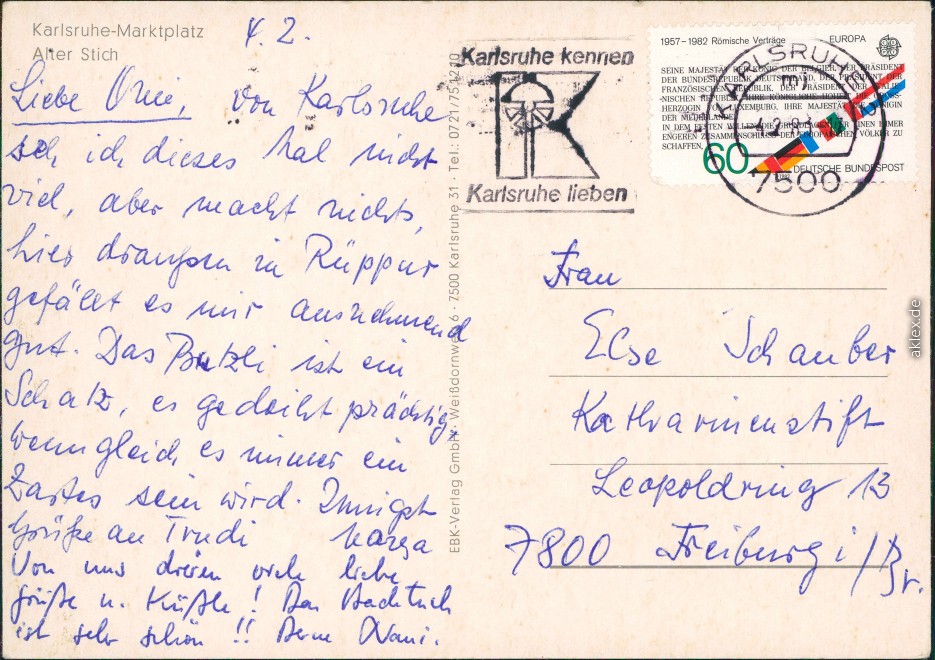 Karlsruhe-Marktplatz
Alter Stich
4.2.
Liebe Omi, von Karlsruhe
seh ich dieses Mal nicht
viel, aber macht nichts,
hier draußen in Rüppur
gefällt es mir ausnehmend
gut. Das Butzli ist ein
Schatz, es gedeiht prächtig,
wenngleich es immer ein
Zartes sein wird. Innigst
Grüße an Trudi
Von uns dreien viele liebe
Grüße u. Küßle! Das Badetuch
ist sehr schön!! Deine Nani.
EBK-Verlag GmbH · Weißdornweg 6 · 7500 Karlsruhe 31 · Tel.: 0721/751210
Karlsruhe kennen
Karlsruhe lieben
1957–1982 Römische Verträge EUROPA
SEINE MAJESTÄT DER KÖNIG DER BELGIER, DER PRÄSIDENT
DER BUNDESREPUBLIK DEUTSCHLAND, DER PRÄSIDENT DER
FRANZÖSISCHEN REPUBLIK, DER PRÄSIDENT DER ITALIE-
NISCHEN REPUBLIK, IHRE KÖNIGLICHE HOHEIT DIE GROSS-
HERZOGIN VON LUXEMBURG, IHRE MAJESTÄT DIE KÖNIGIN
DER NIEDERLANDE
IN DEM FESTEN WILLEN, DIE GRUNDLAGEN FÜR EINEN IMMER
ENGEREN ZUSAMMENSCHLUSS DER EUROPÄISCHEN VÖLKER ZU
SCHAFFEN,
60
DEUTSCHE BUNDESPOST
KARLSRUHE
7500
Frau
Else Schauber
Katharinenstift
Leopoldring 13
7800 Freiburg i/Br.
aklex.de